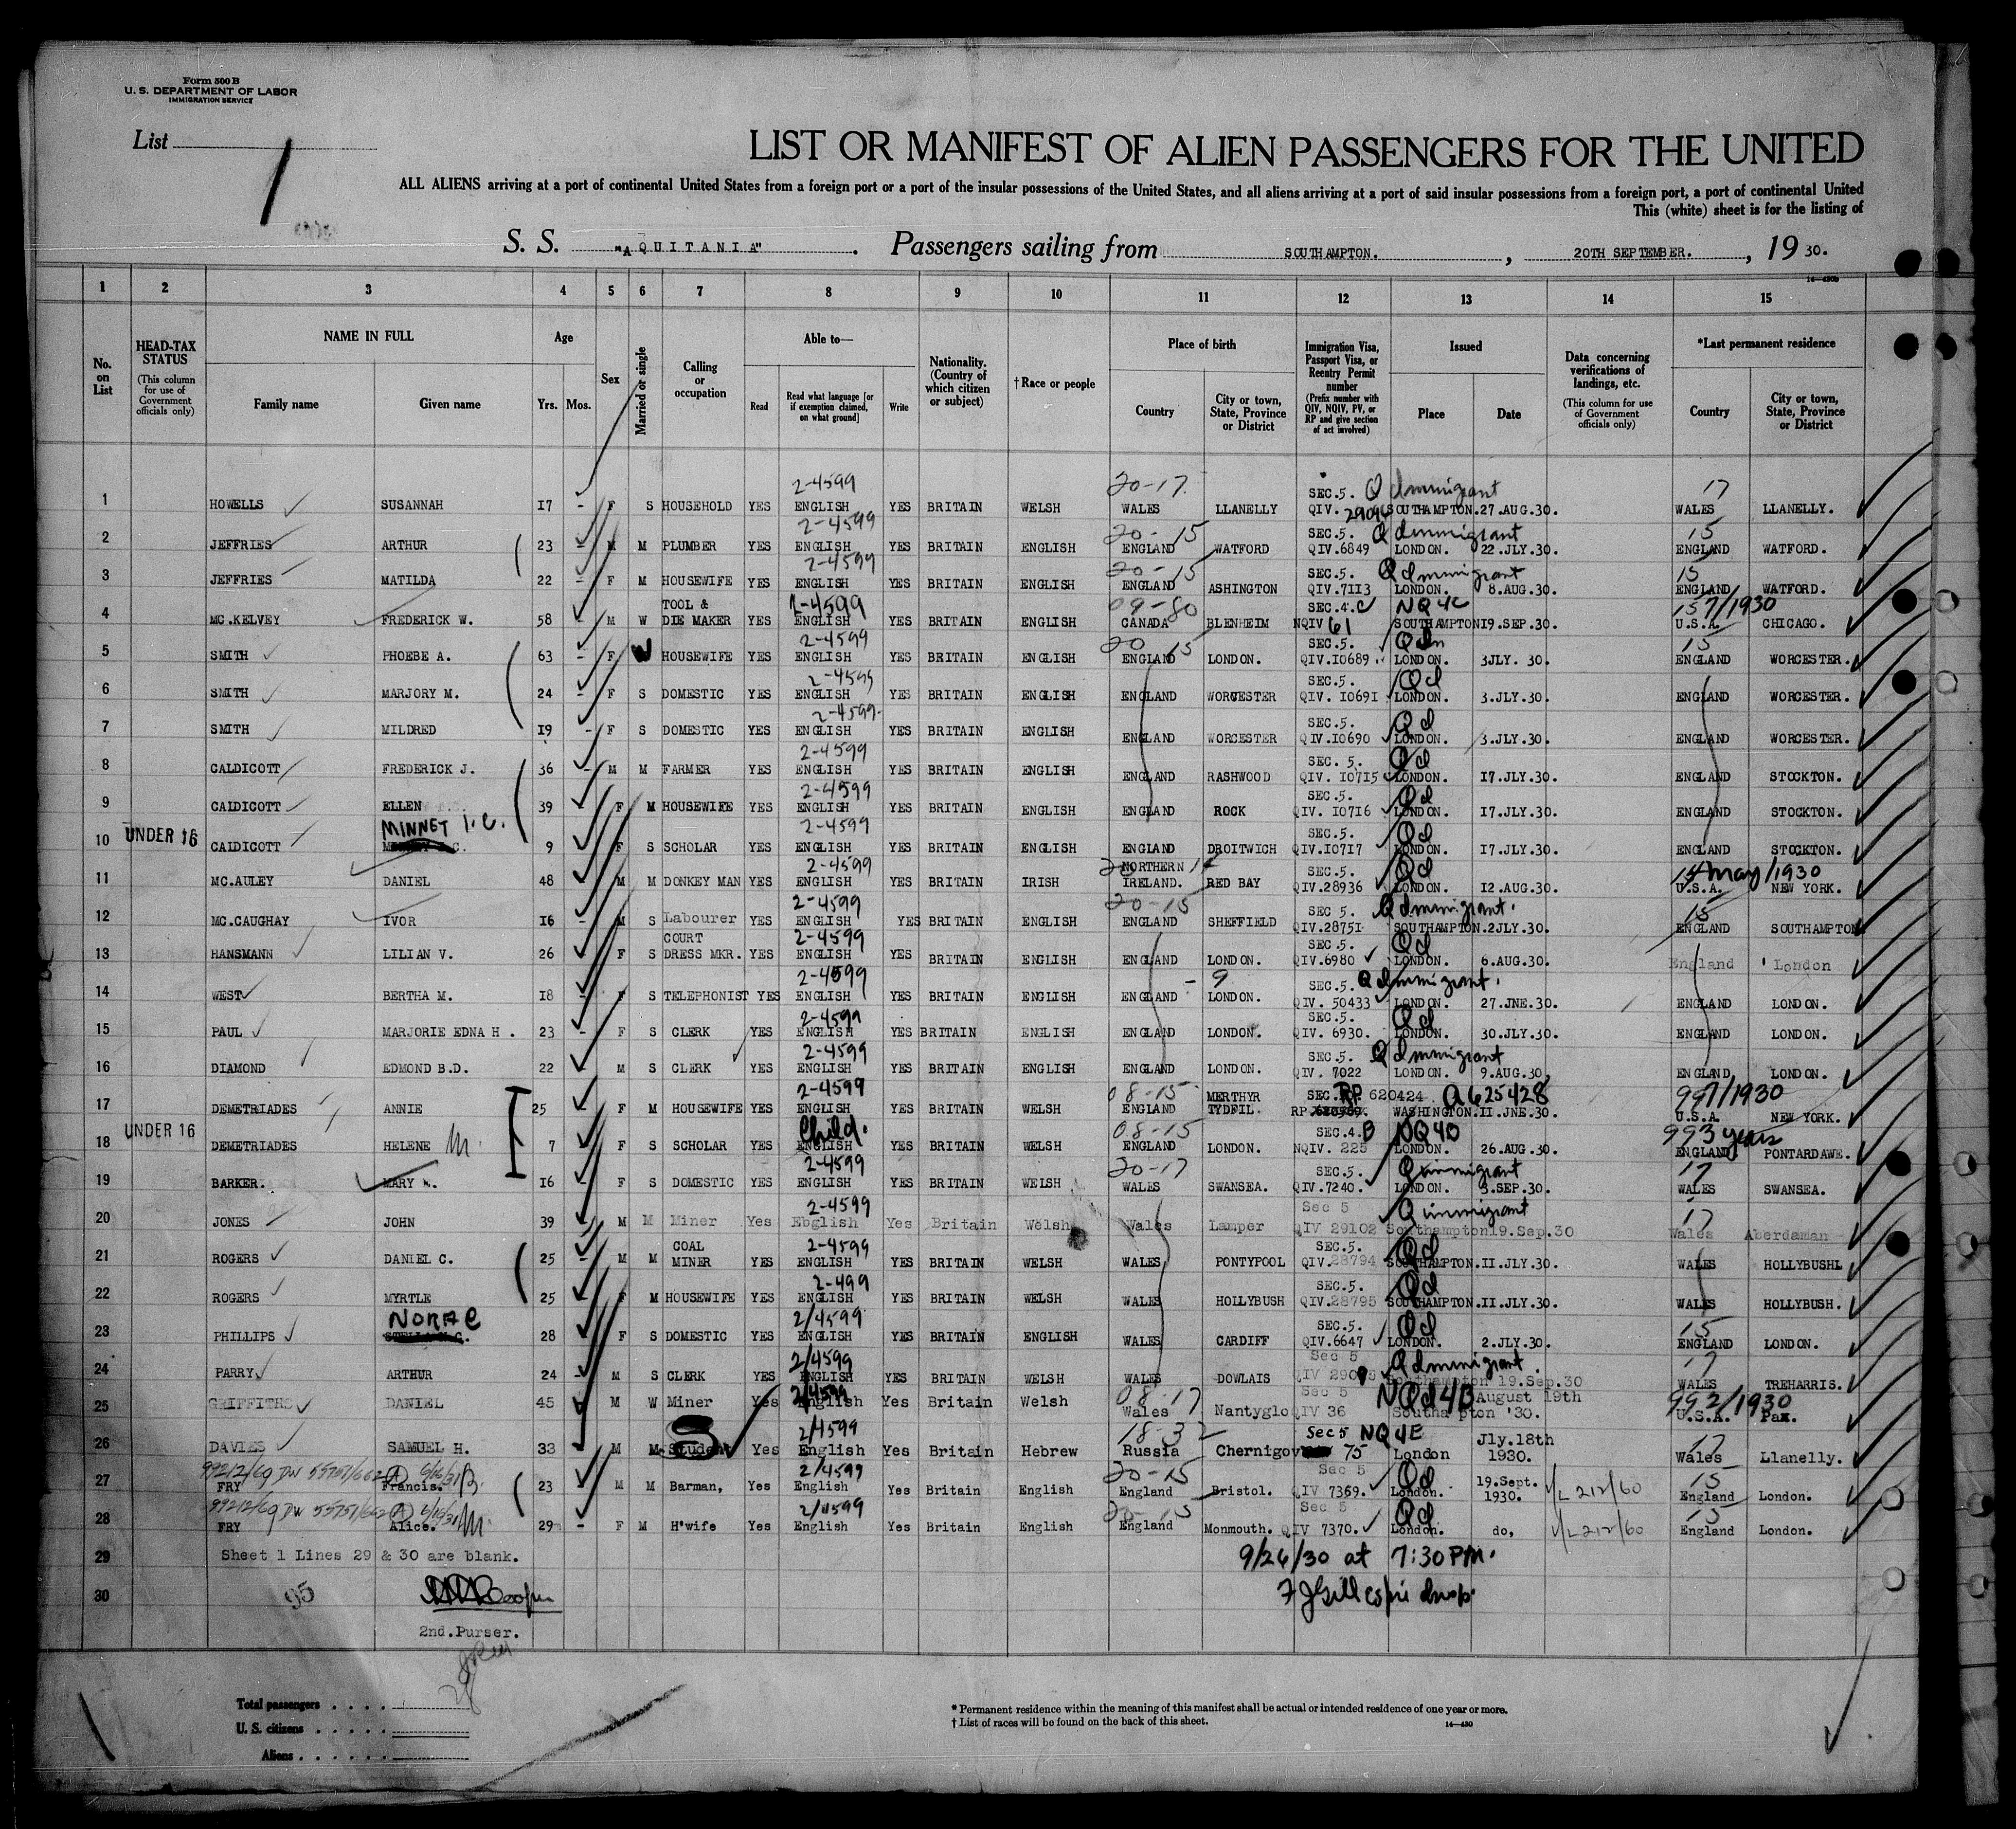 Form 500 B
U. S. DEPARTMENT OF LABOR
IMMIGRATION SERVICE
List 1
LIST OR MANIFEST OF ALIEN PASSENGERS FOR THE UNITED
ALL ALIENS arriving at a port of continental United States from a foreign port or a port of the insular possessions of the United States, and all aliens arriving at a port of said insular possessions from a foreign port, a port of continental United
This (white) sheet is for the listing of
S. S. "AQUITANIA". Passengers sailing from SOUTHAMPTON. , 20TH SEPTEMBER. , 19 30.
1 2 3 4 5 6 7 8 9 10 11 12 13 14 15
No. on List
HEAD-TAX STATUS (This column for use of Government officials only)
NAME IN FULL Family name Given name
Age Yrs. Mos.
Sex
Married or single
Calling or occupation
Able to— Read Read what language [or if exemption claimed, on what ground] Write
Nationality. (Country of which citizen or subject)
† Race or people
Place of birth Country City or town, State, Province or District
Immigration Visa, Passport Visa, or Reentry Permit number (Prefix number with QIV, NQIV, PV, or RP and give section of act involved)
Issued Place Date
Data concerning verifications of landings, etc. (This column for use of Government officials only)
*Last permanent residence Country City or town, State, Province or District
1 HOWELLS SUSANNAH 17 - F S HOUSEHOLD YES 2-4599 ENGLISH YES BRITAIN WELSH 20-17 WALES LLANELLY SEC.5. QIV. 29094 Q Immigrant SOUTHAMPTON. 27.AUG.30. 17 WALES LLANELLY.
2 JEFFRIES ARTHUR 23 - M M PLUMBER YES 2-4599 ENGLISH YES BRITAIN ENGLISH 20-15 ENGLAND WATFORD SEC.5. QIV.6849 Q Immigrant LONDON. 22.JLY.30. 15 ENGLAND WATFORD.
3 JEFFRIES MATILDA 22 - F M HOUSEWIFE YES 2-4599 ENGLISH YES BRITAIN ENGLISH 20-15 ENGLAND ASHINGTON SEC.5. QIV.7113 Q Immigrant LONDON. 8.AUG.30. 15 ENGLAND WATFORD.
4 MC.KELVEY FREDERICK W. 58 - M W TOOL & DIE MAKER YES 2-4599 ENGLISH YES BRITAIN ENGLISH 09-80 CANADA BLENHEIM SEC.4.C NQIV 61 NQ4C SOUTHAMPTON 19.SEP.30. 157/1930 U.S.A. CHICAGO.
5 SMITH PHOEBE A. 63 - F W HOUSEWIFE YES 2-4599 ENGLISH YES BRITAIN ENGLISH 20 15 ENGLAND LONDON. SEC.5. QIV.10689 LONDON. 3JLY. 30. 15 ENGLAND WORCESTER.
6 SMITH MARJORY M. 24 - F S DOMESTIC YES 2-4599 ENGLISH YES BRITAIN ENGLISH ENGLAND WORCESTER SEC.5. QIV. 10691 Qd LONDON. 3.JLY.30. ENGLAND WORCESTER.
7 SMITH MILDRED 19 - F S DOMESTIC YES 2-4599 ENGLISH YES BRITAIN ENGLISH ENGLAND WORCESTER SEC.5. QIV.10690 Qd LONDON. 3.JLY.30. ENGLAND WORCESTER.
8 CALDICOTT FREDERICK J. 36 - M M FARMER YES 2-4599 ENGLISH YES BRITAIN ENGLISH ENGLAND RASHWOOD SEC. 5. QIV. 10715 Qd LONDON. 17.JLY.30. ENGLAND STOCKTON.
9 CALDICOTT ELLEN 39 F M HOUSEWIFE YES 2-4599 ENGLISH YES BRITAIN ENGLISH ENGLAND ROCK SEC.5. QIV. 10716 Qd LONDON. 17.JLY.30. ENGLAND STOCKTON.
10 UNDER 16 CALDICOTT MINNET I.C. 9 F S SCHOLAR YES 2-4599 ENGLISH YES BRITAIN ENGLISH ENGLAND DROITWICH SEC.5. QIV.10717 Qd LONDON. 17.JLY.30. ENGLAND STOCKTON.
11 MC.AULEY DANIEL 48 M M DONKEY MAN YES 2-4599 ENGLISH YES BRITAIN IRISH NORTHERN IRELAND. RED BAY SEC.5. QIV.28936 Qd LONDON. 12.AUG.30. 15 May/1930 U.S.A. NEW YORK.
12 MC.CAUGHAY IVOR 16 - M S Labourer YES 2-4599 ENGLISH YES BRITAIN ENGLISH 20-15 ENGLAND SHEFFIELD SEC 5. QIV.28751 Q Immigrant. SOUTHAMPTON. 2JLY.30. 15 ENGLAND SOUTHAMPTON
13 HANSMANN LILIAN V. 26 - F S COURT DRESS MKR. YES 2-4599 ENGLISH YES BRITAIN ENGLISH ENGLAND LONDON. SEC.5. QIV.6980 Qd LONDON. 6.AUG.30. England London
14 WEST BERTHA M. 18 F S TELEPHONIST YES 2-4599 ENGLISH YES BRITAIN ENGLISH - 9 ENGLAND LONDON. SEC.5. QIV. 50433 Q Immigrant. LONDON. 27.JNE.30. ENGLAND LONDON.
15 PAUL MARJORIE EDNA H . 23 - F S CLERK YES 2-4599 ENGLISH YES BRITAIN ENGLISH ENGLAND LONDON. SEC.5. QIV. 6930. Qd LONDON. 30.JLY.30. ENGLAND LONDON.
16 DIAMOND EDMOND B.D. 22 M S CLERK YES 2-4599 ENGLISH YES BRITAIN ENGLISH ENGLAND LONDON. SEC.5. QIV. 7022 Q Immigrant LONDON. 9.AUG.30. ENGLAND LONDON.
17 DEMETRIADES ANNIE 25 - F M HOUSEWIFE YES 2-4599 ENGLISH YES BRITAIN WELSH 08-15 ENGLAND MERTHYR TYDFIL. SEC. RP 620424 A625428 WASHINGTON. 11.JNE.30. 997/1930 U.S.A. NEW YORK.
18 UNDER 16 DEMETRIADES HELENE M. 7 F S SCHOLAR YES Child. ENGLISH YES BRITAIN WELSH 08-15 ENGLAND LONDON. SEC.4.B NQIV. 225 NQ4B LONDON. 26.AUG.30. 993 years ENGLAND PONTARDAWE.
19 BARKER. MARY 16 F S DOMESTIC YES 2-4599 ENGLISH YES BRITAIN WELSH 20-17 WALES SWANSEA. SEC.5. QIV.7240. Q immigrant LONDON. 3.SEP.30. 17 WALES SWANSEA.
20 JONES JOHN 39 M M Miner Yes 2-4599 Ebglish Yes Britain Welsh Wales Lamper Sec 5 QIV 29102 Q immigrant Southampton 19.Sep.30 17 Wales Aberdaman
21 ROGERS DANIEL C. 25 - M M COAL MINER YES 2-4599 ENGLISH YES BRITAIN WELSH WALES PONTYPOOL SEC.5. QIV.28794 Qd SOUTHAMPTON. 11.JLY.30. WALES HOLLYBUSHL
22 ROGERS MYRTLE 25 F M HOUSEWIFE YES 2-499 ENGLISH YES BRITAIN WELSH WALES HOLLYBUSH SEC.5. QIV.28795 Qd SOUTHAMPTON. 11.JLY.30. WALES HOLLYBUSH.
23 PHILLIPS NORAE 28 F S DOMESTIC YES 2/4599 ENGLISH YES BRITAIN ENGLISH WALES CARDIFF SEC.5. QIV.6647 Qd LONDON. 2.JLY.30. 15 ENGLAND LONDON.
24 PARRY ARTHUR 24 - M S CLERK YES 2/4599 ENGLISH YES BRITAIN WELSH WALES DOWLAIS Sec 5 QIV Q Immigrant. Southampton 19.Sep.30 17 WALES TREHARRIS.
25 GRIFFITHS DANIEL 45 M W Miner Yes 2/4599 English Yes Britain Welsh 08-17 Wales Nantyglo Sec 5 QIV 36 NQd4B Southa pton August 19th '30. 992/1930 U.S.A. Pax.
26 DAVIES SAMUEL H. 33 M M Student S Yes 2/4599 English Yes Britain Hebrew 18-32 Russia Chernigov Sec 5 75 NQ4E London Jly.18th 1930. 17 Wales Llanelly.
99212/69 DW 55751/662 (A) 6/16/31 B.
27 FRY Francis. 23 M M Barman, Yes 2/4599 English Yes Britain English 20-15 England Bristol. Sec 5 QIV 7369. Qd London. 19.Sept. 1930. L 212/60 15 England London.
99212/69 DW 55751/662 (A) 6/16/31 M.
28 FRY Alice. 29 - F M H'wife Yes 2/4599 English Yes Britain English 20-15 England Monmouth. Sec 5 QIV 7370. Qd London. do, L 212/60 15 England London.
29 Sheet 1 Lines 29 & 30 are blank. 9/26/30 at 7:30 PM.
30 95 Cooper F J Gillespie
2nd.Purser.
Total passengers . . . .
U. S. citizens . . . . .
Aliens . . . . . .
* Permanent residence within the meaning of this manifest shall be actual or intended residence of one year or more.
† List of races will be found on the back of this sheet. 14—430